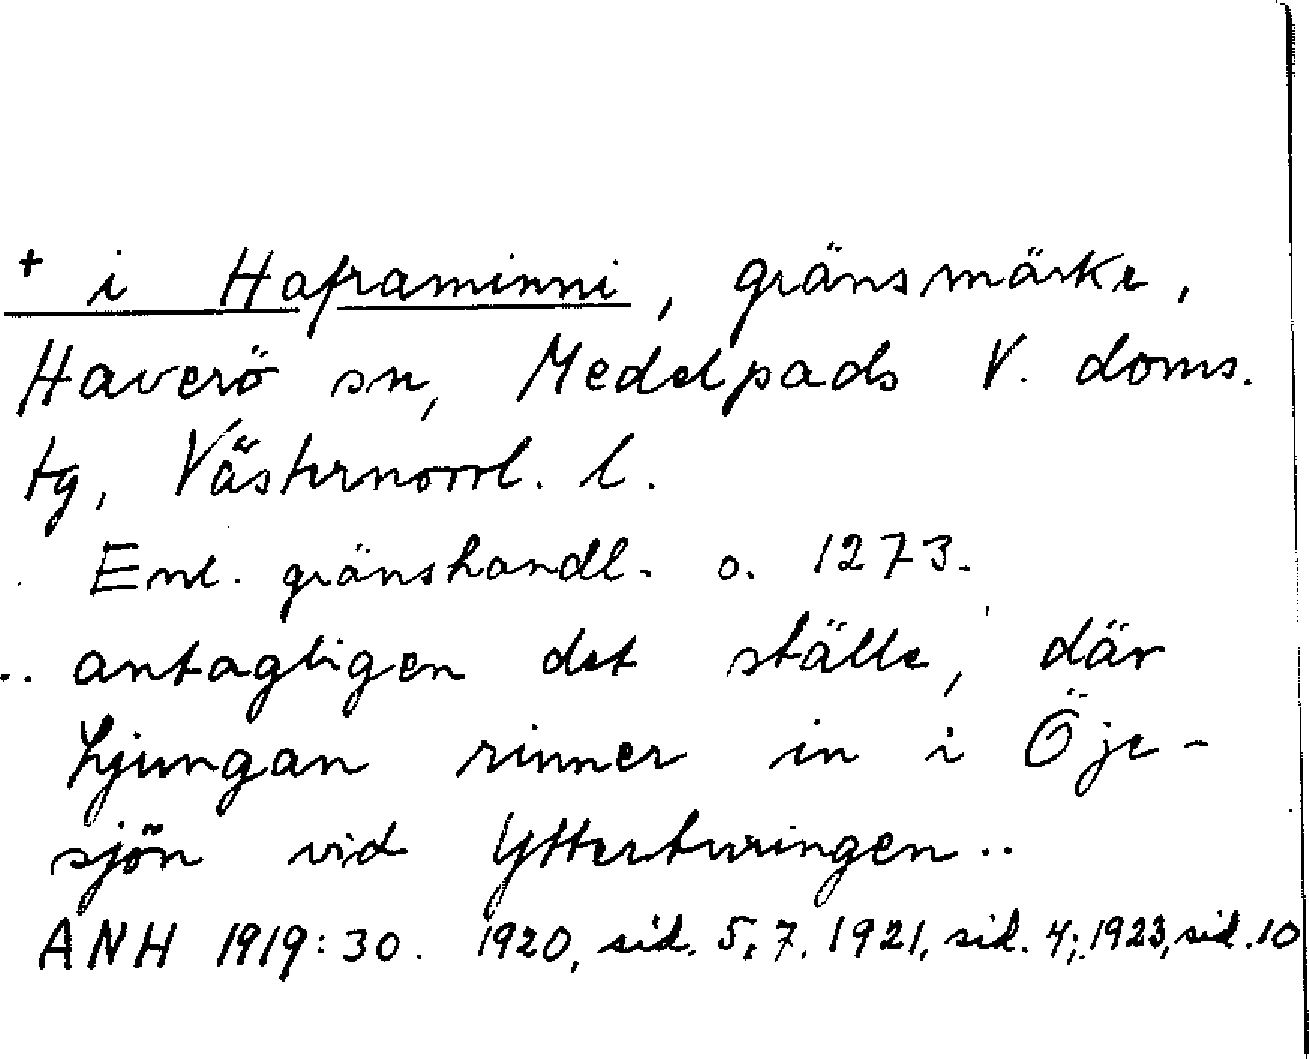 + i Haframinni, gränsmärke,
Haverö sn, Medelpads V. doms.
tg, Västernorrl. l.
Enl. gränshandl. o. 1273.
.. antagligen det ställe, där
Ljungan rinner in i Öje-
sjön vid Ytterturingen..
ANH 1919:30. 1920, sid. 5, 7. 1921, sid. 4; 1923, sid. 10